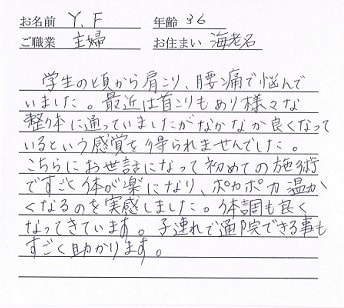 お名前 Y.F 年齢 36
ご職業 主婦 お住まい 海老名
学生の頃から肩こり、腰痛で悩んで
いました。最近は首こりもあり様々な
整体に通っていましたがなかなか良くなって
いるという感覚を得られませんでした。
こちらにお世話になって初めての施術
ですごく体が楽になり、ポカポカ温か
くなるのを実感しました。体調も良く
なってきています。子連れで通院できる事も
すごく助かります。